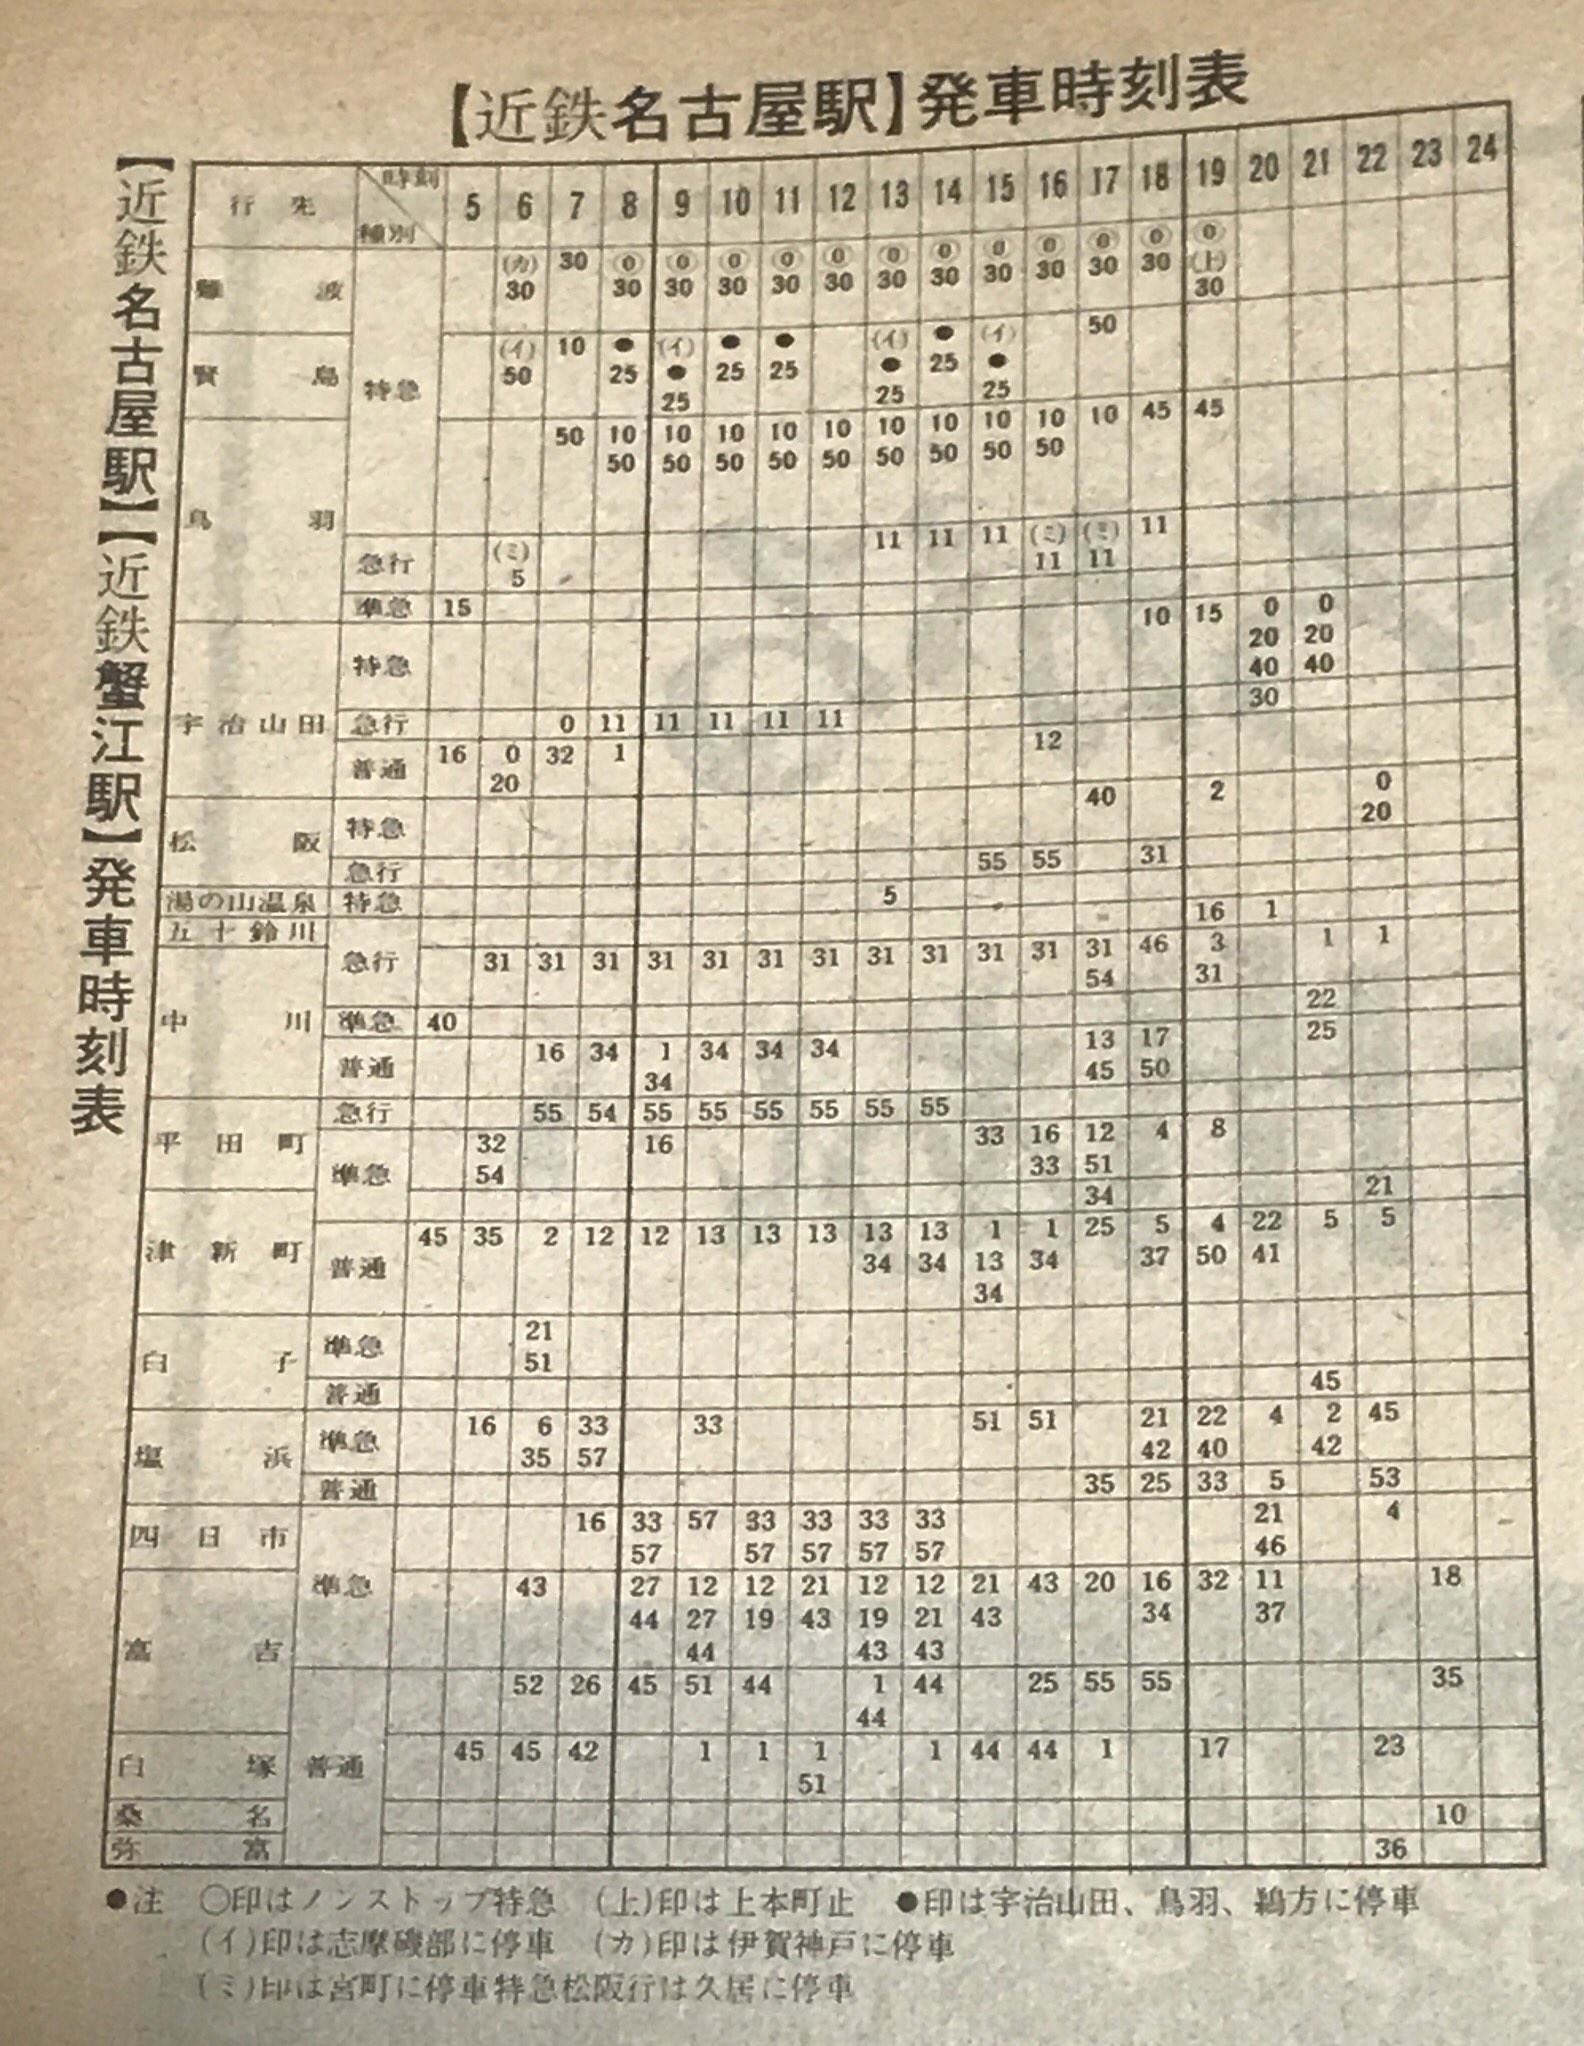 【近鉄名古屋駅】発車時刻表
【近鉄名古屋駅】【近鉄蟹江駅】発車時刻表
行先 時刻 種別 5 6 7 8 9 10 11 12 13 14 15 16 17 18 19 20 21 22 23 24
難波 特急 (カ) 30 ⓪ ⓪ ⓪ ⓪ ⓪ ⓪ ⓪ ⓪ ⓪ ⓪ ⓪ ⓪
30 30 30 30 30 30 30 30 30 30 30 30 (上)
30
賢島 (イ) 10 ● (イ) ● ● (イ) ● (イ) 50
50 25 ● 25 25 ● 25 ●
25 25 25
鳥羽 50 10 10 10 10 10 10 10 10 10 10 45 45
50 50 50 50 50 50 50 50 50
急行 (ミ) 11 11 11 (ミ) (ミ) 11
5 11 11
準急 15
宇治山田 特急 10 15 0 0
20 20
40 40
30
急行 0 11 11 11 11 11
普通 16 0 32 1 12
20
松阪 特急 40 2 0
20
急行 55 55 31
湯の山温泉 特急 5
五十鈴川 急行 16 1
中川 31 31 31 31 31 31 31 31 31 31 31 31 46 3 1 1
54 31
22
準急 40 25
普通 16 34 1 34 34 34 13 17
34 45 50
平田町 急行 55 54 55 55 55 55 55 55
準急 32 16 33 16 12 4 8
54 33 51
津新町 34 21
普通 45 35 2 12 12 13 13 13 13 13 1 1 25 5 4 22 5 5
34 34 13 34 37 50 41
34
白子 準急 21
51
普通 45
塩浜 準急 16 6 33 33 51 51 21 22 4 2 45
35 57 42 40 42
普通 35 25 33 5 53
四日市 準急 16 33 57 33 33 33 33 21 4
57 57 57 57 57 46
富吉 43 27 12 12 21 12 12 21 43 20 16 32 11 18
44 27 19 43 19 21 43 34 37
44 43 43
普通 52 26 45 51 44 1 44 25 55 55 35
44
白塚 45 45 42 1 1 1 1 44 44 1 17 23
51
桑名 10
弥富 36
●注 ○印はノンストップ特急 (上)印は上本町止 ●印は宇治山田、鳥羽、鵜方に停車
(イ)印は志摩磯部に停車 (カ)印は伊賀神戸に停車
(ミ)印は宮町に停車特急松阪行は久居に停車